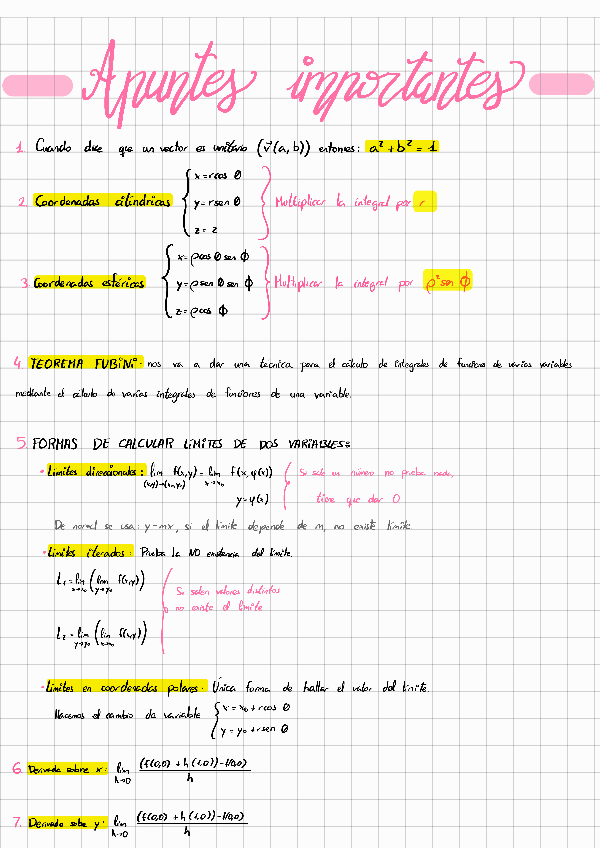 Apuntes importantes
1. Cuando dice que un vector es unitario (v⃗(a,b)) entonces: a² + b² = 1
2. Coordenadas cilíndricas { x = rcos θ
y = rsen θ
z = z } Multiplicar la integral por r
3. Coordenadas esféricas { x = ρcos θ sen ϕ
y = ρsen θ sen ϕ
z = ρcos ϕ } Multiplicar la integral por ρ² sen ϕ
4. TEOREMA FUBINI: nos va a dar una tecnica para el cálculo de integrales de funciones de varias variables
mediante el cálculo de varias integrales de funciones de una variable.
5. FORMAS DE CALCULAR LIMITES DE DOS VARIABLES:
· Limites direccionales: lim (x,y)→(x₀,y₀) f(x,y) = lim x→x₀ f(x,φ(x))
y = φ(x)
Si sale un número no prueba nada,
tiene que dar 0
De normal se usa: y = mx, si el limite depende de m, no existe limite.
· Limites iterados: Prueba la NO existencia del limite.
L₁ = lim x→x₀ (lim y→y₀ f(x,y))
L₂ = lim y→y₀ (lim x→x₀ f(x,y))
Si salen valores distintos
no existe el limite
· Limites en coordenadas polares: Única forma de hallar el valor del limite.
Hacemos el cambio de variable { x = x₀ + rcos θ
y = y₀ + rsen θ
6. Derivada sobre x: lim h→0 (f(0,0) + h(1,0)) - f(0,0) / h
7. Derivada sobe y: lim h→0 (f(0,0) + h(1,0)) - f(0,0) / h